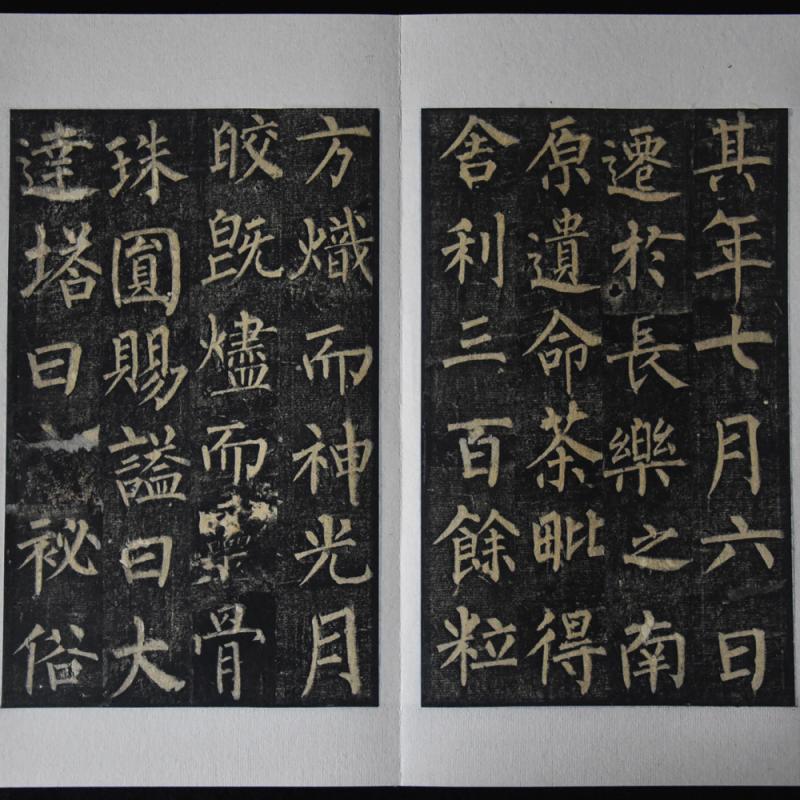 其年七月六日
遷於長樂之南
原遺命茶毗得
舍利三百餘粒
方熾而神光月
皎既燼而骨
珠圓賜謚曰大
達塔曰祕俗